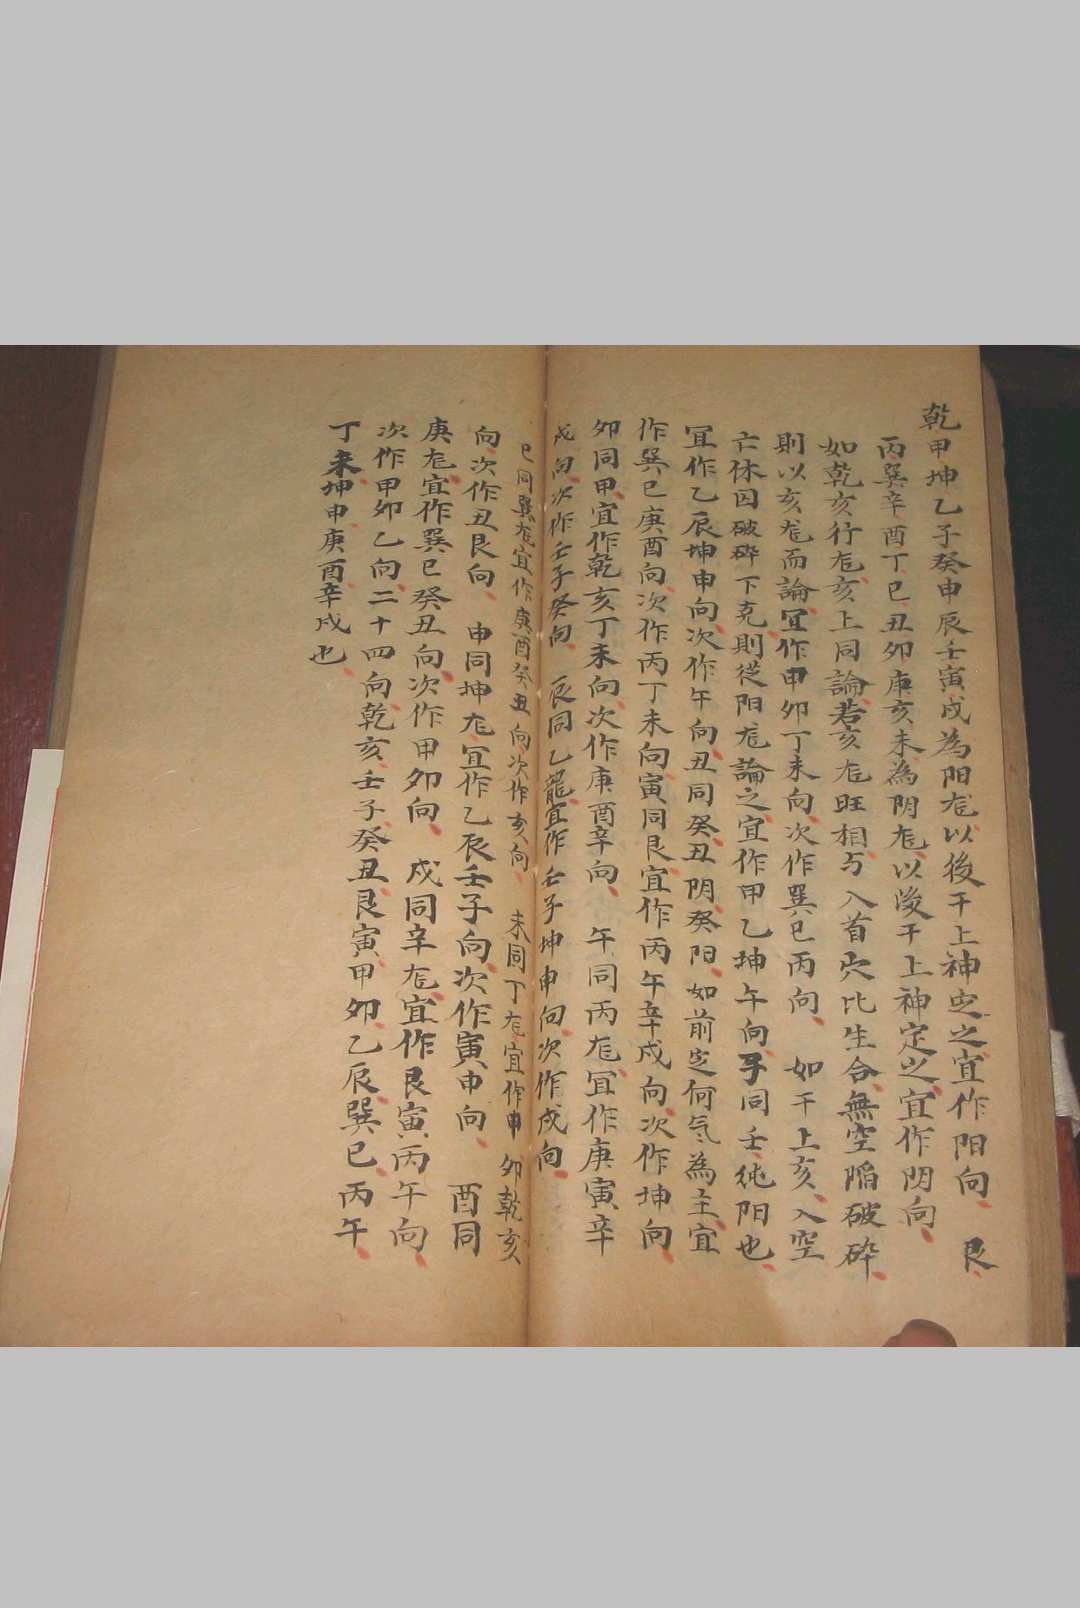 乾甲坤乙子癸申辰壬寅戌為阳龙以後干上神定之宜作阳向 艮
丙巽辛酉丁巳丑卯庚亥未為阴龙以後干上神定之宜作阴向
如乾亥行龙亥上同論若亥龙旺相与入首穴比生合無空陷破碎
則以亥龙而論宜作甲卯丁未向次作巽巳丙向 如干上亥入空
亡休囚破碎下克則從阳龙論之宜作甲乙坤午向子同壬純阳也
宜作乙辰坤申向次作午向丑同癸丑阴癸阳如前定何气為主宜
作巽巳庚酉向次作丙丁未向寅同艮宜作丙午辛戌向次作坤向
卯同甲宜作乾亥丁未向次作庚酉辛向 午同丙龙宜作庚寅辛
戌向次作壬子癸向 辰同乙龍宜作壬子坤申向次作戌向
巳同巽龙宜作庚酉癸丑向次作亥向 未同丁龙宜作申 卯乾亥
向次作丑艮向 申同坤龙宜作乙辰壬子向次作寅申向 酉同
庚龙宜作巽巳癸丑向次作甲卯向 戌同辛龙宜作艮寅丙午向
次作甲卯乙向二十四向乾亥壬子癸丑艮寅甲卯乙辰巽巳丙午
丁未坤申庚酉辛戌也